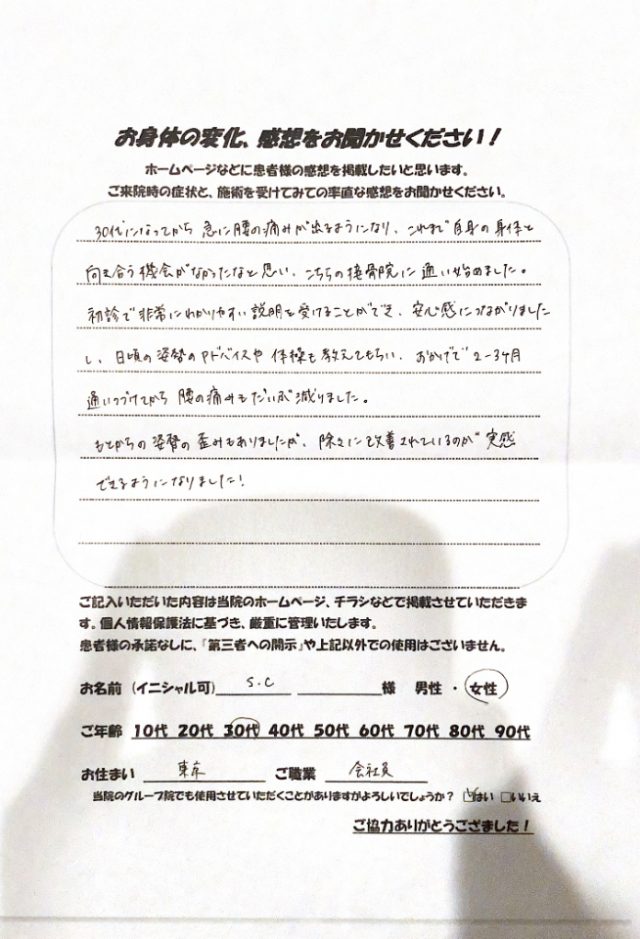 お身体の変化、感想をお聞かせください！
ホームページなどに患者様の感想を掲載したいと思います。
ご来院時の症状と、施術を受けてみての率直な感想をお聞かせください。
30代になってから 急に腰の痛みが出るようになり、これまで自身の身体と
向き合う機会がなかったなと思い、こちらの接骨院に通い始めました。
初診で非常にわかりやすい説明を受けることができ、安心感につながりました
し、日頃の姿勢のアドバイスや体操も教えてもらい、おかげで2-3ヶ月
通いつづけてから腰の痛みもだいぶ減りました。
もとからの姿勢の歪みもありましたが、除々に改善されているのが実感
できるようになりました！
ご記入いただいた内容は当院のホームページ、チラシなどで掲載させていただきま
す。個人情報保護法に基づき、厳重に管理いたします。
患者様の承諾なしに、『第三者への開示』や上記以外での使用はございません。
お名前（イニシャル可） S.C 様 男性・女性
ご年齢 10代 20代 30代 40代 50代 60代 70代 80代 90代
お住まい 東京 ご職業 会社員
当院のグループ院でも使用させていただくことがありますがよろしいでしょうか？ ☑はい □いいえ
ご協力ありがとうござました！